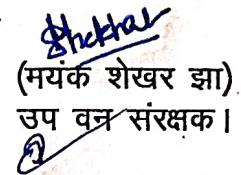 Shekhar
(मयंक शेखर झा)
उप वन संरक्षक।